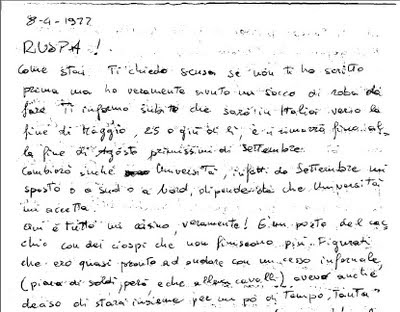 8-4-1977
RUSPA!
Come stai. Ti chiedo scusa se non ti ho scritto
prima ma ho veramente avuto un sacco di roba da
fare. Ti informo subito che sarò in Italia verso la
fine di Maggio, 25 o giù di lì, e ci rimarrò fino al-
la fine di Agosto primissimi di Settembre.
Cambierò anche Università, infatti da Settembre mi
sposto o a sud o a nord, dipenderà che Università
mi accetta.
Qui è tutto un casino, veramente! È un posto del cac
chio con dei ciospi che non finiscono più. Figurati
che ero quasi pronto ad andare con un cesso infernale
(piena di soldi, però, e che alleva cavalli) avevo anche
deciso di stare insieme per un pò di tempo, tanta